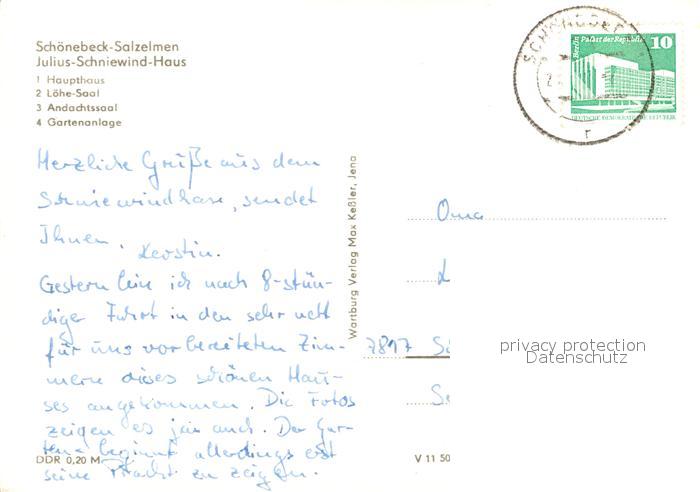 Schönebeck-Salzelmen
Julius-Schniewind-Haus
1 Haupthaus
2 Löhe-Saal
3 Andachtssaal
4 Gartenanlage
Herzliche Grüße aus dem
Schniewindhaus, sendet
Ihnen, Kerstin.
Gestern bin ich nach 8-stün-
diger Fahrt in den sehr nett
für uns vorbereiteten Zim-
mern dieses schönen Hau-
ses angekommen. Die Fotos
zeigen es ja auch. Der Gar-
ten beginnt allerdings erst
seine Pracht zu zeigen.
DDR 0,20 M
Wartburg Verlag Max Keßler, Jena
V 11 50
Berlin Palast der Republik
10
DEUTSCHE DEMOKRATISCHE REPUBLIK
SCHÖNEBECK
r
Oma
L
7817 Sc
Se
privacy protection
Datenschutz